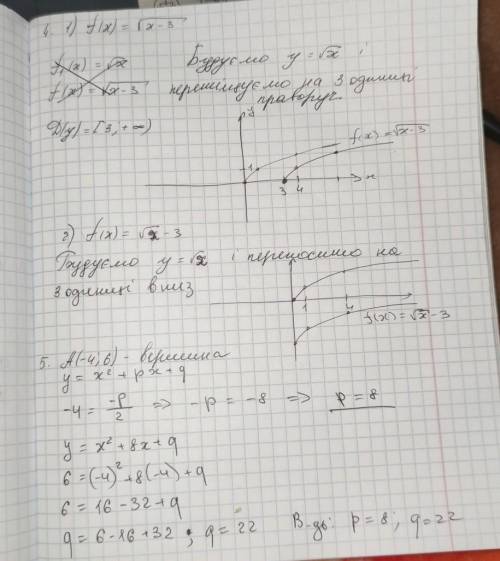 4. 1) f(x) = √x-3
f₁(x) = √x
Будуємо y = √x і
f(x) = √x-3
переміщуємо на 3 одиниці
праворуч.
D(y) = [3; +∞)
y
f(x) = √x-3
1
3 4 x
2) f(x) = √x - 3
Будуємо y = √x і переносимо на
3 одиниці вниз
1 4
f(x) = √x - 3
5. A(-4; 6) - вершина
y = x² + px + q
-4 = -p/2 => -p = -8 => p = 8
y = x² + 8x + q
6 = (-4)² + 8(-4) + q
6 = 16 - 32 + q
q = 6 - 16 + 32 ; q = 22 В-дь: p = 8; q = 22